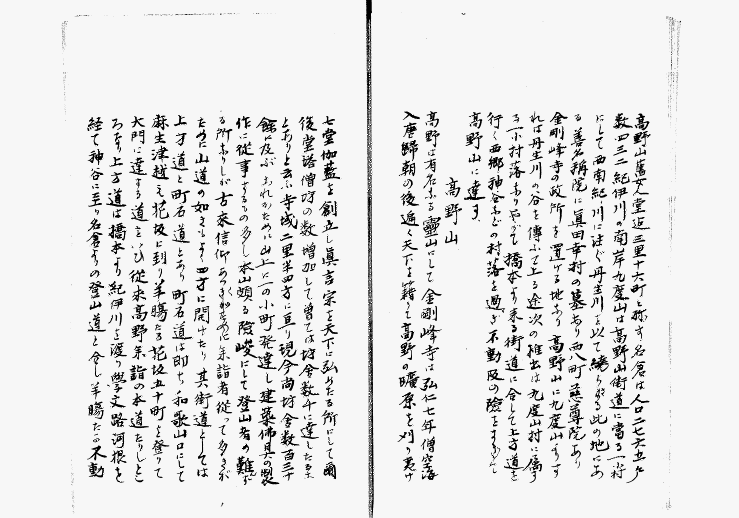 高野山舊女人堂迄三里十六町と称す名倉は人口二七六五戸
数四三二紀伊川の南岸九度山は高野山街道に當る一村
にして西南紀川に注ぐ丹生川を以て繞らる此の地にあ
る善名稱院に眞田幸村の墓あり西八町慈尊院あり
金剛峰寺の政所を置ける地なり高野山に九度山よりす
れは丹生川の谷を傳ふて上る途次の椎出は九度山村に属す
る一小村落なりやがて橋本より来る街道に合して上方道を
行く西郷神谷などの村落を過ぎ不動阪の險をすぎて
高野山に達す
高野山
高野は有名なる靈山にして金剛峰寺は弘仁七年僧空海
入唐歸朝の後遍く天下を籍りて高野の曠原を刈り夷け
七堂伽藍を創立し眞言宗を天下に弘めたる所にして爾
後堂塔僧坊の数増加して曽ては坊舎数千に達したるこ
とありと云ふ寺域二里半四方に亘り現今尚坊舎数百三十
餘に及ぶ これがために山上に一の小町発達し建築佛具の製
作に従事するもの多し本山頗る險峻にして登山者の難ん
る所なりしが古来信仰あつきがために参詣者従って多きが
ために山道の如きもよく四方に開けたり其街道としては
上方道と町石道とあり町石道は即ち和歌山口にして
麻生津越え花坂に到り羊腸たる花坂五十町を登りて
大門に達する道をいひ従来高野参詣の本道たりしとこ
ろなり上方道は橋本より紀伊川を渡り學文路河根を
経て神谷に至り名倉よりの登山道と合し羊腸たる不動